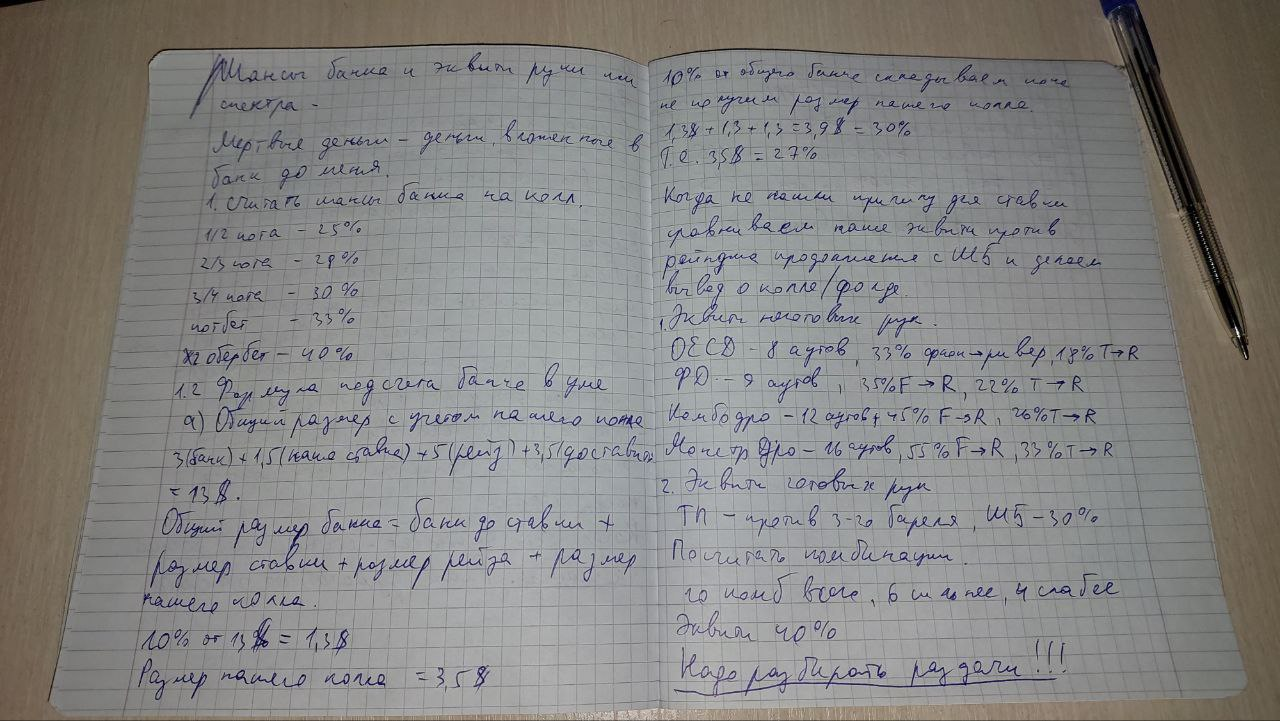 Шансы банка и эквити руки или
спектра -
Мертвые деньги - деньги, вложенные в
банк до меня.
1. Считать шансы банка на колл.
1/2 пота - 25%
2/3 пота - 29%
3/4 пота - 30%
потбет - 33%
x2 овербет - 40%
1.2 Формула подсчета банка в уме
а) Общий размер с учетом нашего колла
3(банк) + 1,5(наша ставка) + 5(рейз) + 3,5(доставить
= 13$.
Общий размер банка = банк до ставки +
размер ставки + размер рейза + размер
нашего колла.
10% от 13$ = 1,3$
Размер нашего колла = 3,5$
10% от общего банка складываем пока
не получим размер нашего колла.
1,3$ + 1,3 + 1,3 = 3,9$ = 30%
Т.е. 3,5$ = 27%
Когда не нашли причину для ставки
сравниваем наше эквити против
рейнджа продолжения с ШБ и делаем
вывод о колле/фолде.
1. Эквити неготовых рук.
OESD - 8 аутов, 33% флоп→ривер, 18% T→R
ФД - 9 аутов, 35% F→R, 22% T→R
Комбодро - 12 аутов, 45% F→R, 26% T→R
Монстр Дро - 16 аутов, 55% F→R, 33% T→R
2. Эквити готовых рук
ТП - против 3-го бареля, ШБ - 30%
Посчитать комбинации.
10 комб всего, 6 сильнее, 4 слабее
Эквити 40%
Надо разбирать раздачи!!!